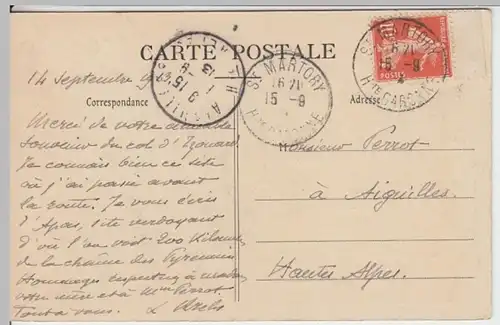 CARTE POSTALE
14 Septembre
Correspondance
Adresse
ST MARTORY
16 21
15 -9
Hte GARONNE
ST MARTORY
16 21
15 -9
Hte GARONNE
Merci de votre aimable
souvenir du col d'Izouard
Je connais bien ce site
où j'ai passé avant
la route. Je vous écris
d'Apas, site verdoyant
d'où l'on voit 200 Kilom.
de la chaîne des Pyrénées
Hommages respectueux à
votre mère et à Mme Perrot.
Tout à vous.
Monsieur Perrot
à Aiguilles
Hautes Alpes.